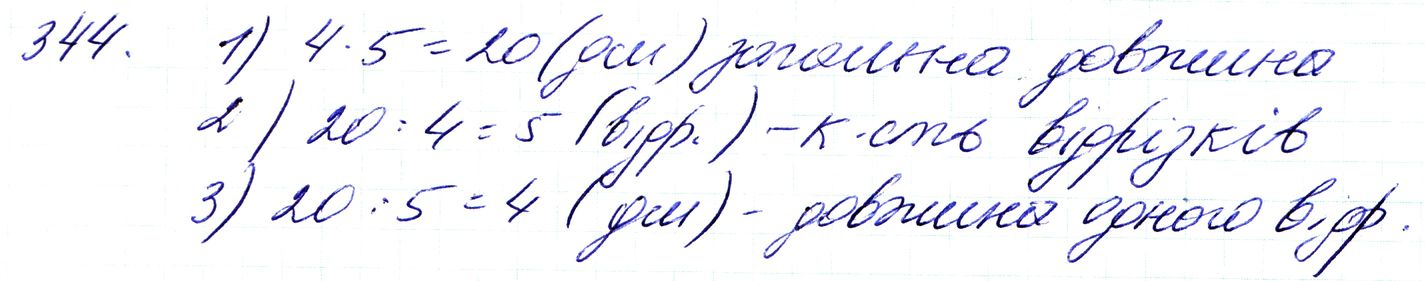 344. 1) 4·5=20 (дм) загальна довжина
2) 20:4=5 (відр.) - к-сть відрізків
3) 20:5=4 (дм) - довжина одного відр.